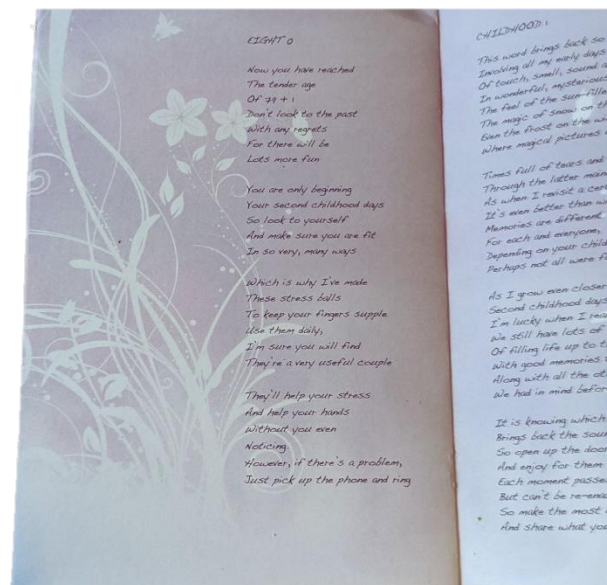 EIGHT O
Now you have reached
The tender age
Of 79 + 1
Don't look to the past
With any regrets
For there will be
Lots more fun
You are only beginning
Your second childhood days
So look to yourself
And make sure you are fit
In so very, many ways
Which is why I've made
These stress balls
To keep your fingers supple
Use them daily,
I'm sure you will find
They're a very useful couple
They'll help your stress
And help your hands
Without you even
Noticing
However, if there's a problem,
Just pick up the phone and ring
CHILDHOOD:
This word brings back so
Involving all my early days
Of touch, smell, sound
In wonderful, mysterious
The feel of the
The magic of snow on
Even the frost on the
Where magical pictures
Times full of tears and
Through the latter
As when I revisit a
It's even better than
Memories are different
For each and everyone,
Depending on your
Perhaps not all were
As I grow even closer
Second childhood days
I'm lucky when I
We still have lots of
Of filling life up to
With good memories
Along with all the
We had in mind
It is knowing which
Brings back the
So open up the
And enjoy for them
Each moment
But can't be
So make the most
And share what